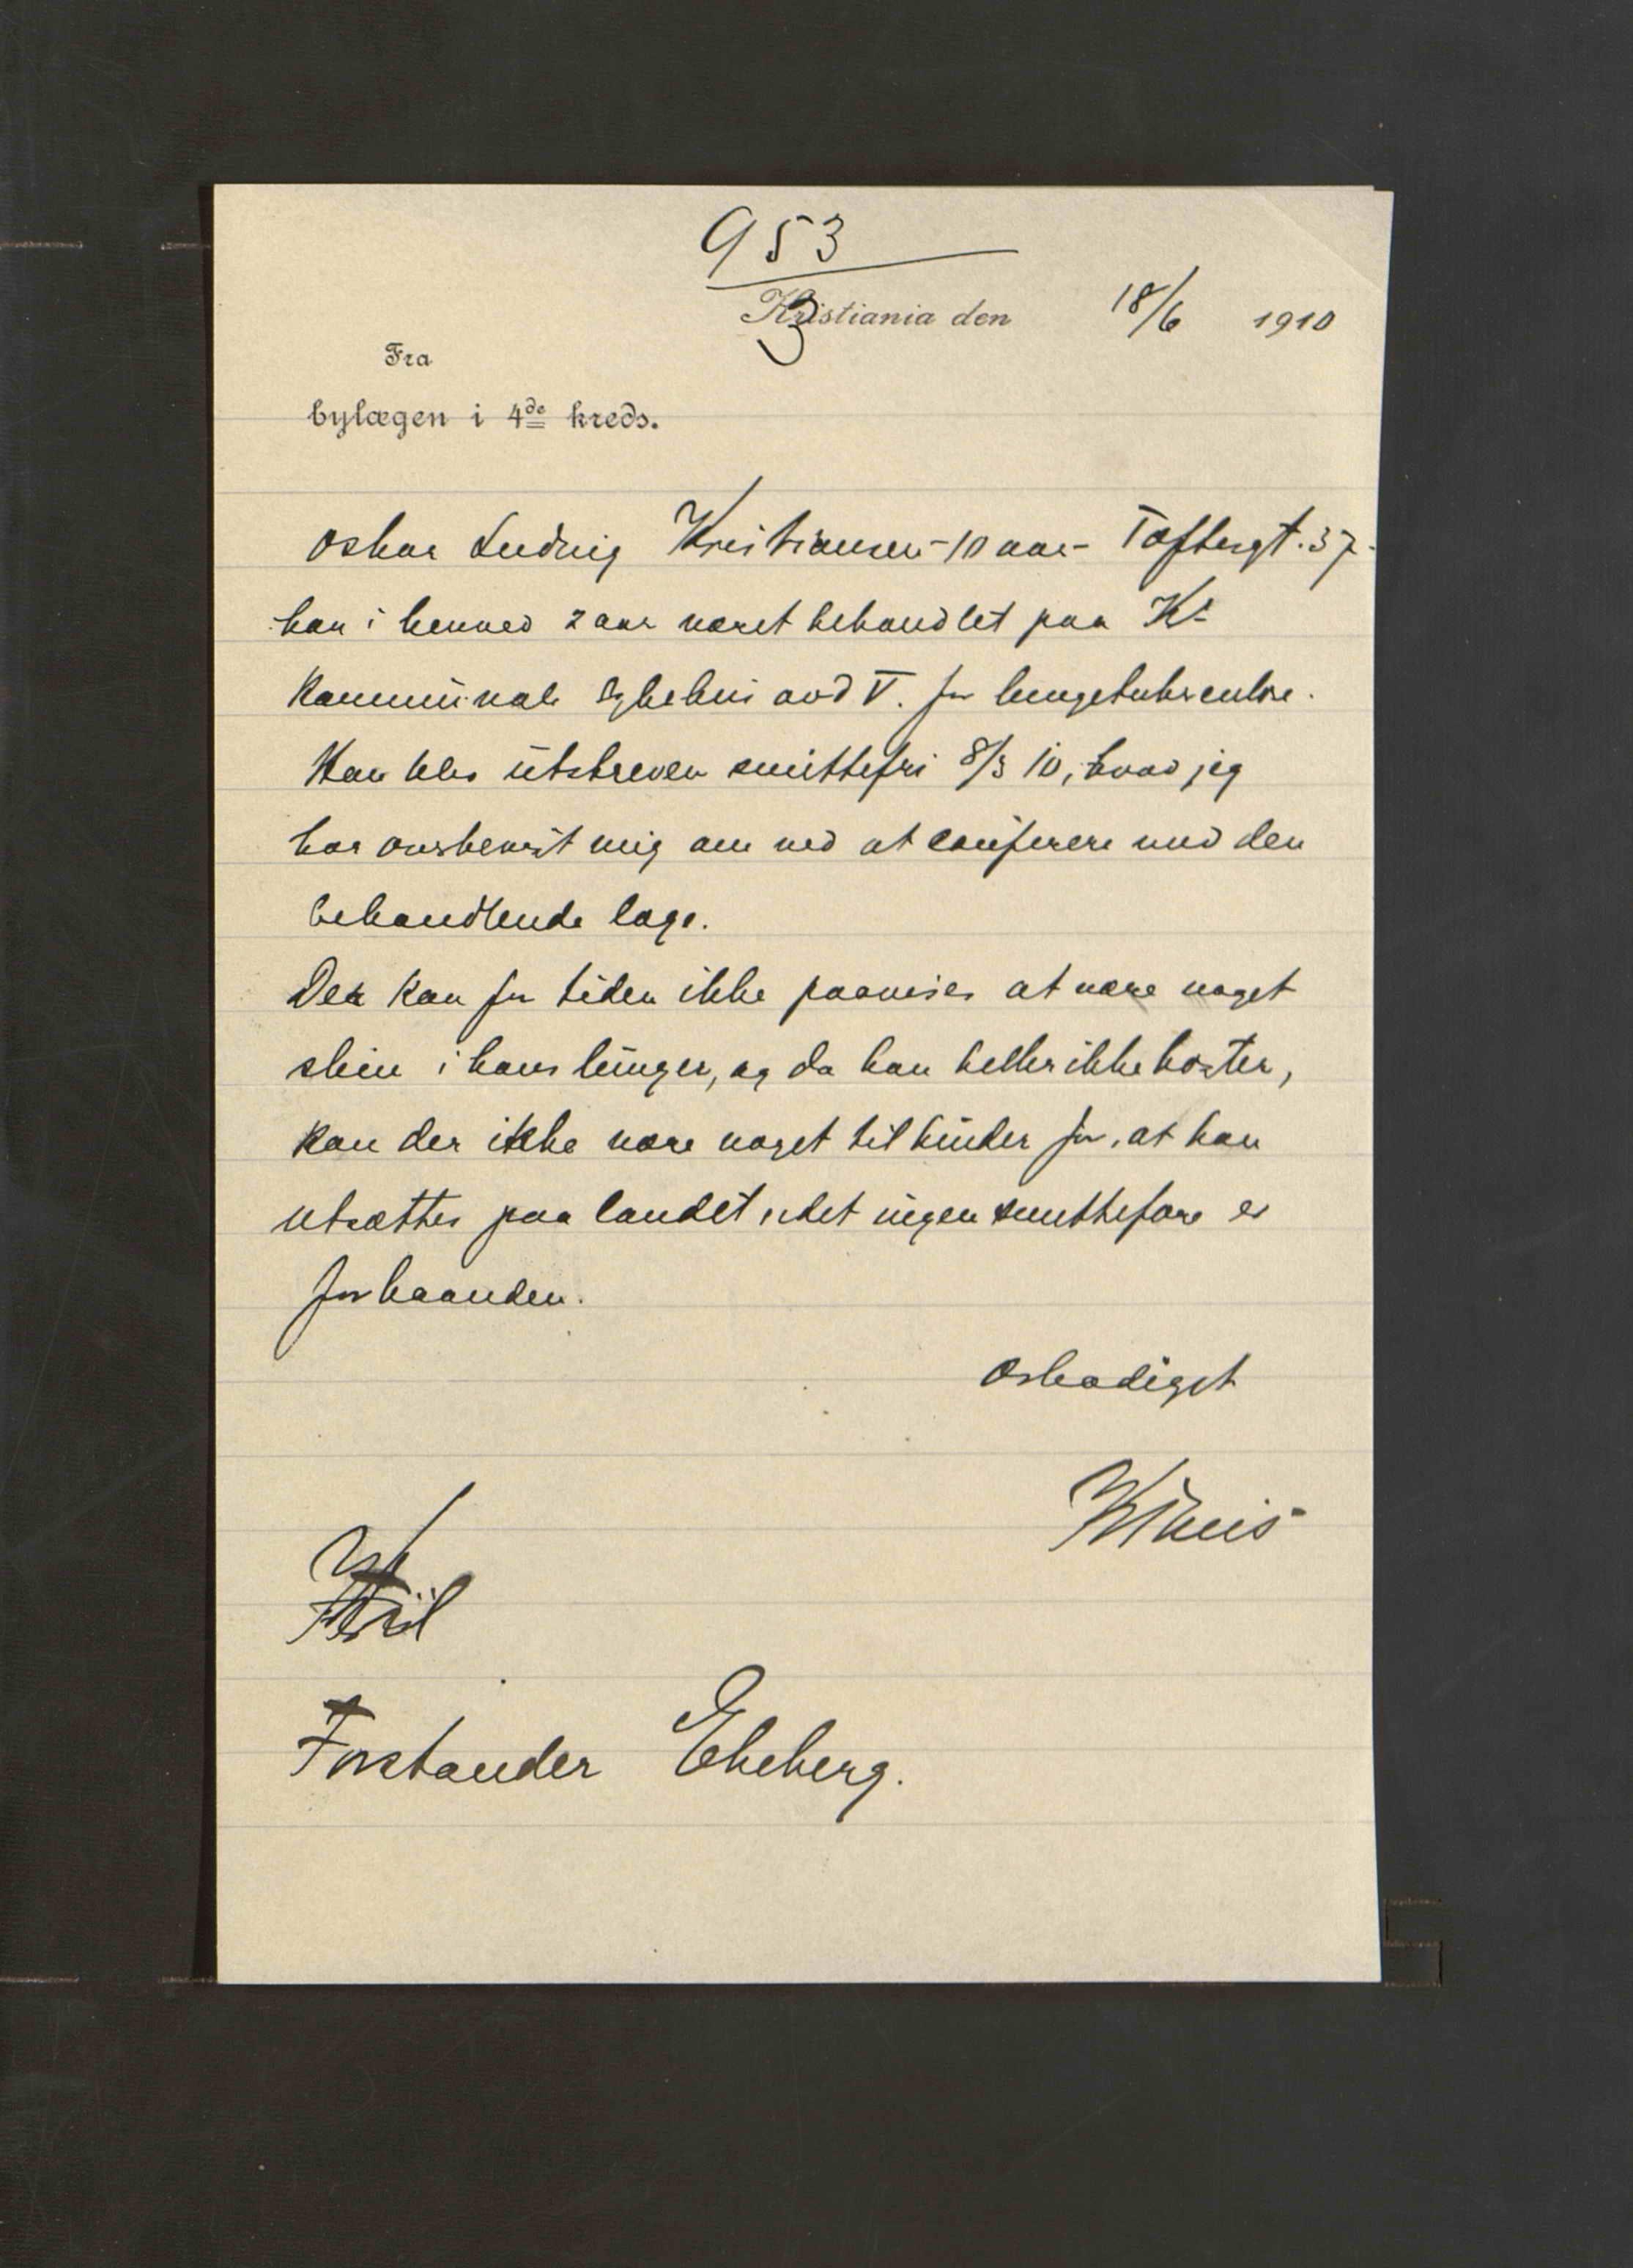 953
3
Kristiania den 18/6 1910
Fra
bylægen i 4de kreds.
Oskar Ludvig Kristiansen - 10 aar - Toftesgt. 37.
har i henved 2 aar været behandlet paa Ka
Kommunale sykehus avd V. for lungetuberculose.
Han blev utskreven smittefri 8/3 10, hvad jeg
har overbevist mig om ved at conferere med den
behandlende læge.
Der kan for tiden ikke paavises at være noget
slim i hans lunger, og da han heller ikke hoster,
kan der ikke være noget til hinder for, at han
utsættes paa landet, idet ingen smittefare er
forhaanden.
Ærbødigst
Til
Forstander Ekeberg.